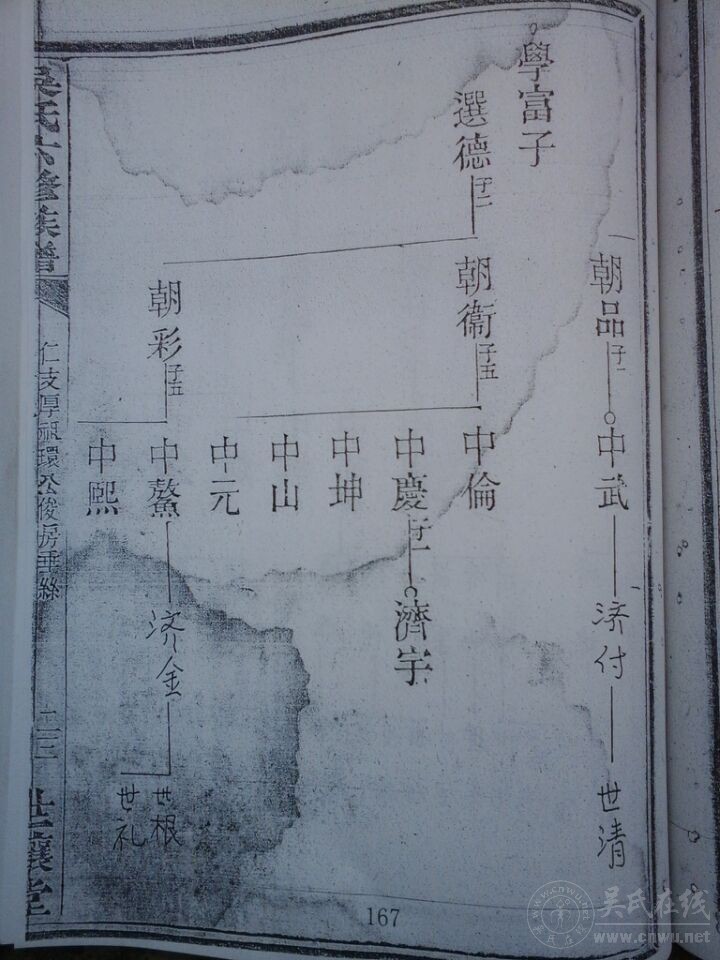 學富子
選德 子二
朝品 子一
朝衞 子五
朝彩 子五
中武
中倫
中慶 子一
中坤
中山
中元
中鰲
中熙
济付
濟宇
济金
世清
世根
世礼
吳氏六修族譜
仁支厚祖環公俊房垂絲
世讓堂
167
吴氏在线
www.cnwu.net